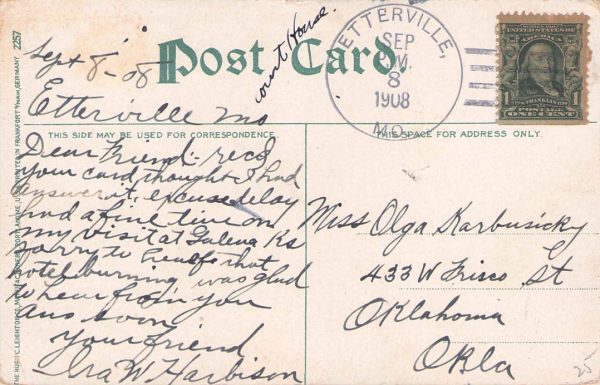 Sept 8 - 08
Post Card.
Court House.
Etterville Mo
ETTERVILLE,
SEP
8
1908
MO.
UNITED STATES OF AMERICA
FRANKLIN
1 POSTAGE 1
ONE CENT
THIS SIDE MAY BE USED FOR CORRESPONDENCE.
THIS SPACE FOR ADDRESS ONLY.
Dear Friend:- recd
your card thought I had
answer it. excuse delay
had a fine time on
my visit at Galena Ks
sorry to hear of that
hotel burning was glad
to hear from you
ans soon
your friend
Ira W Harbison
Miss Olga Karbusicky
433 W Frisco St
Oklahoma
Okla
25
THE HUGH C. LEIGHTON CO., MANUFACTURERS, PORTLAND, ME., U.S.A. PRINTED IN FRANKFORT o/MAIN, GERMANY. 2257